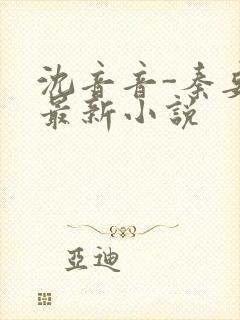 沈音音-秦
最新小说
亞迪